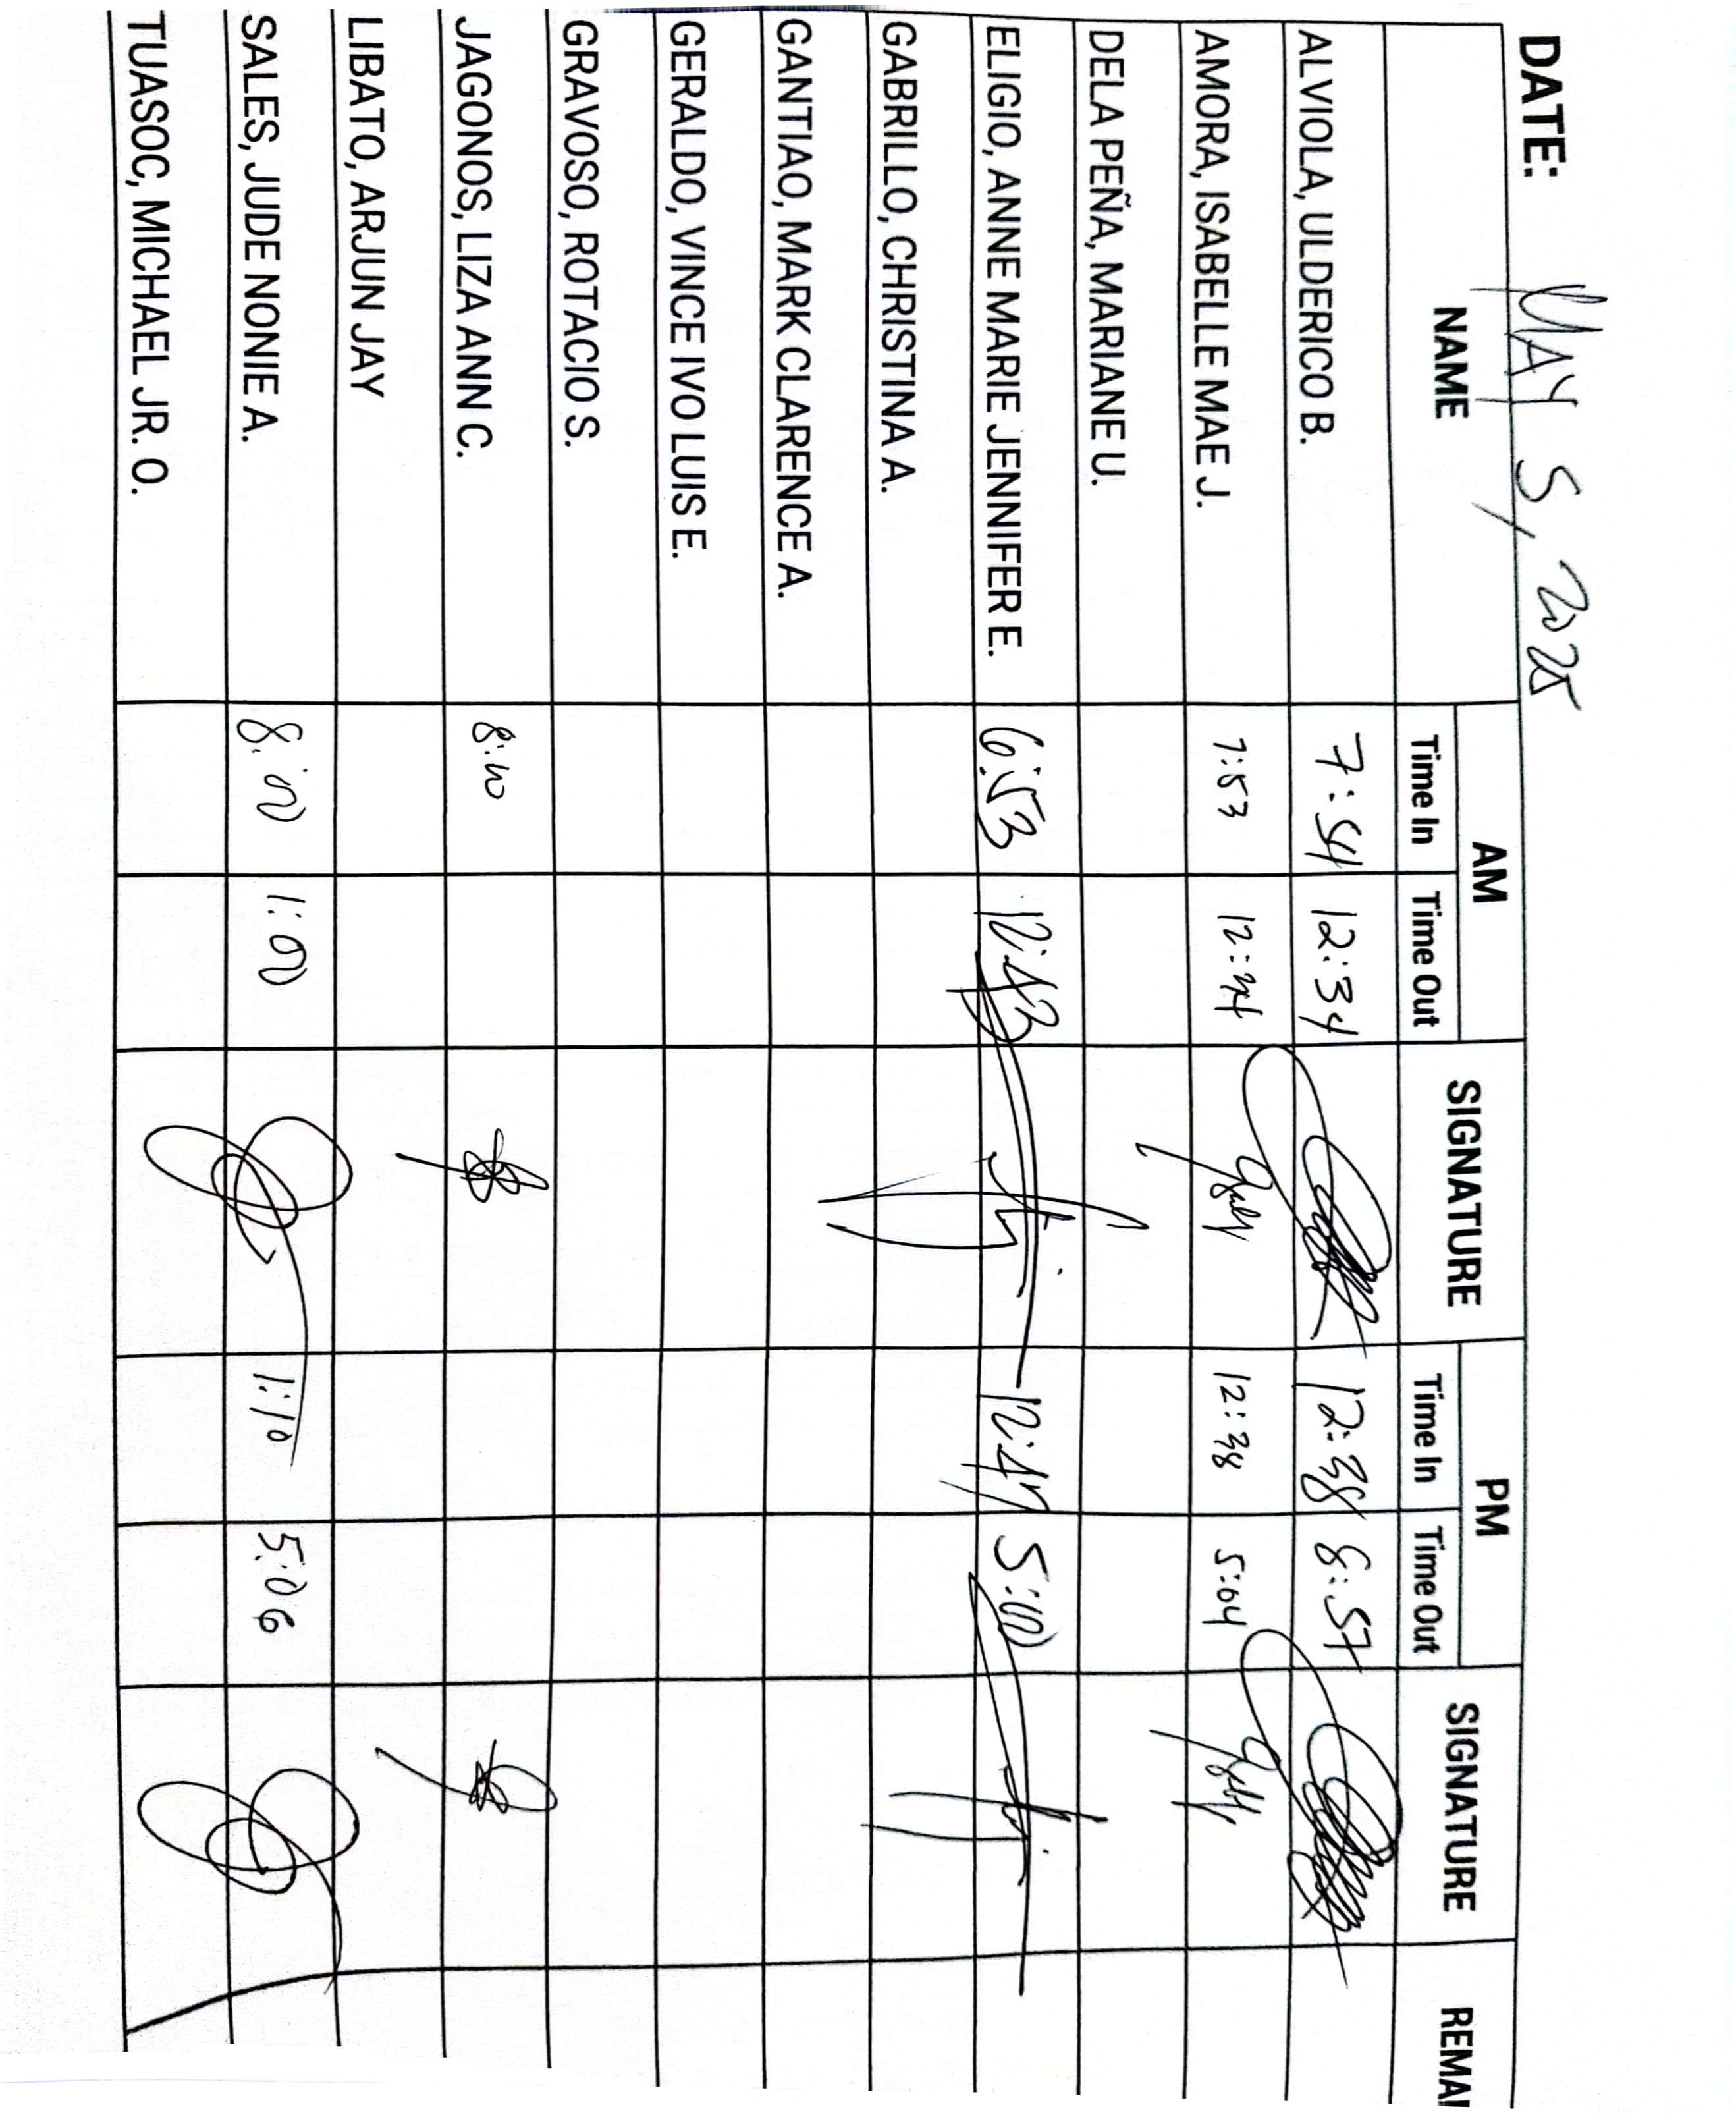 DATE: MAY 5, 2025
NAME AM SIGNATURE PM SIGNATURE REMAI
Time In Time Out Time In Time Out
ALVIOLA, ULDERICO B. 7:54 12:34 12:38 8:57
AMORA, ISABELLE MAE J. 7:53 12:34 12:38 5:04
DELA PEÑA, MARIANE U.
ELIGIO, ANNE MARIE JENNIFER E. 6:53 12:43 12:47 5:00
GABRILLO, CHRISTINA A.
GANTIAO, MARK CLARENCE A.
GERALDO, VINCE IVO LUIS E.
GRAVOSO, ROTACIO S.
JAGONOS, LIZA ANN C. 8:10
LIBATO, ARJUN JAY
SALES, JUDE NONIE A. 8:00 1:00 1:10 5:06
TUASOC, MICHAEL JR. O.